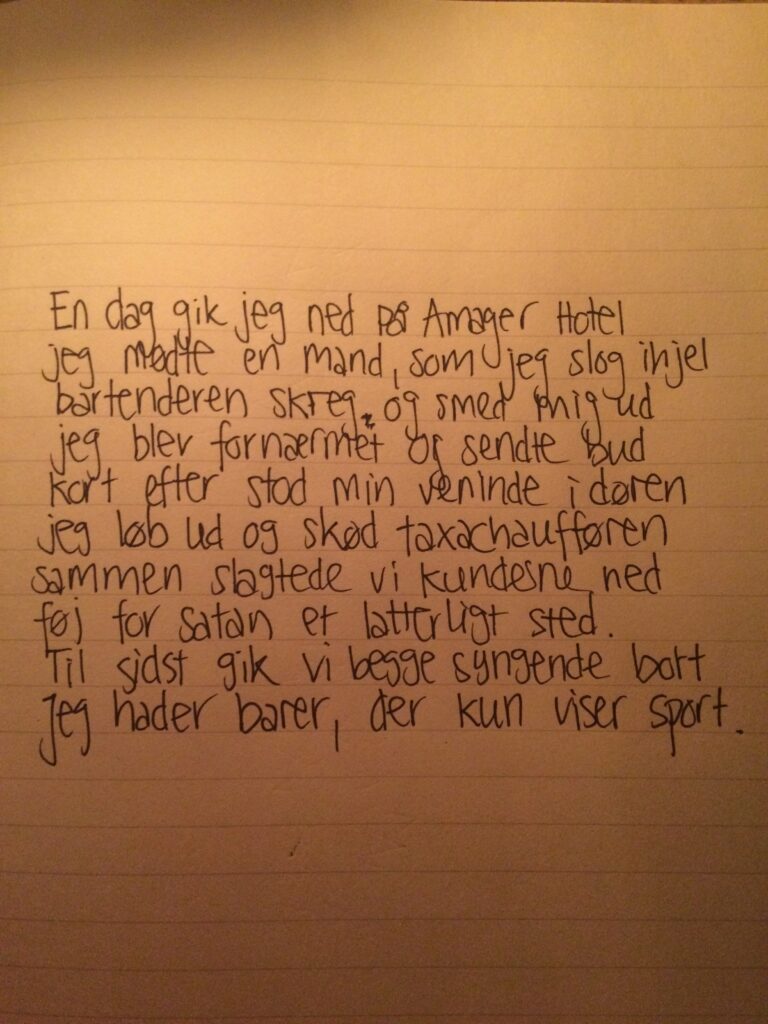 En dag gik jeg ned på Amager Hotel
jeg mødte en mand, som jeg slog ihjel
bartenderen skreg, og smed mig ud
jeg blev fornærmet og sendte bud
kort efter stod min veninde i døren
jeg løb ud og skød taxachaufføren
sammen slagtede vi kundesne ned
føj for satan et latterligt sted.
Til sidst gik vi begge syngende bort
Jeg hader barer, der kun viser sport.